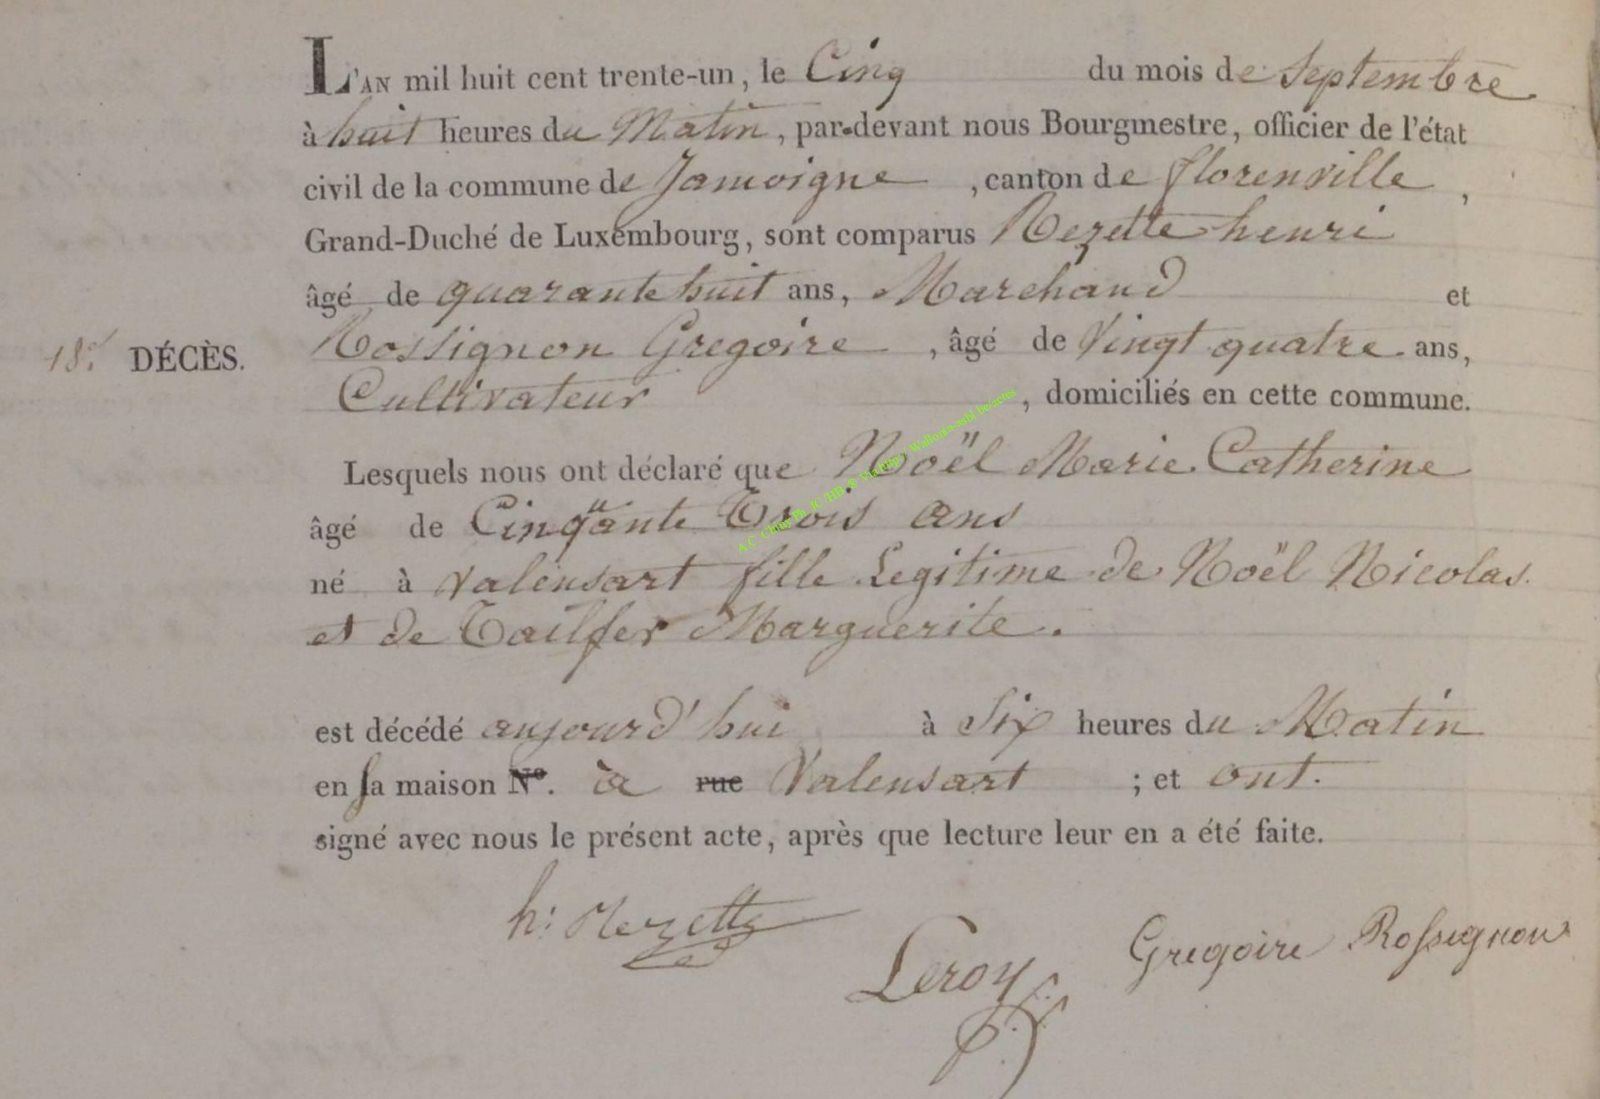 L'AN mil huit cent trente-un, le Cinq du mois de Septembre
à huit heures du Matin, par-devant nous Bourgmestre, officier de l'état
civil de la commune de Jamoigne, canton de florenville,
Grand-Duché de Luxembourg, sont comparus Rezette henri
âgé de quarante huit ans, Marchand et
18.e DÉCÈS. Rossignon Gregoire, âgé de Vingt quatre ans,
Cultivateur, domiciliés en cette commune.
Lesquels nous ont déclaré que Noël Marie Catherine
âgé de Cinqüante Trois ans
né à Valensart fille Legitime de Noël Nicolas
et de Tailfer Marguerite.
est décédé aujourd'hui à Six heures du Matin
en sa maison N°. à rue Valensart ; et ont.
signé avec nous le présent acte, après que lecture leur en a été faite.
h: Rezette
Leroy
Gregoire Rossignon